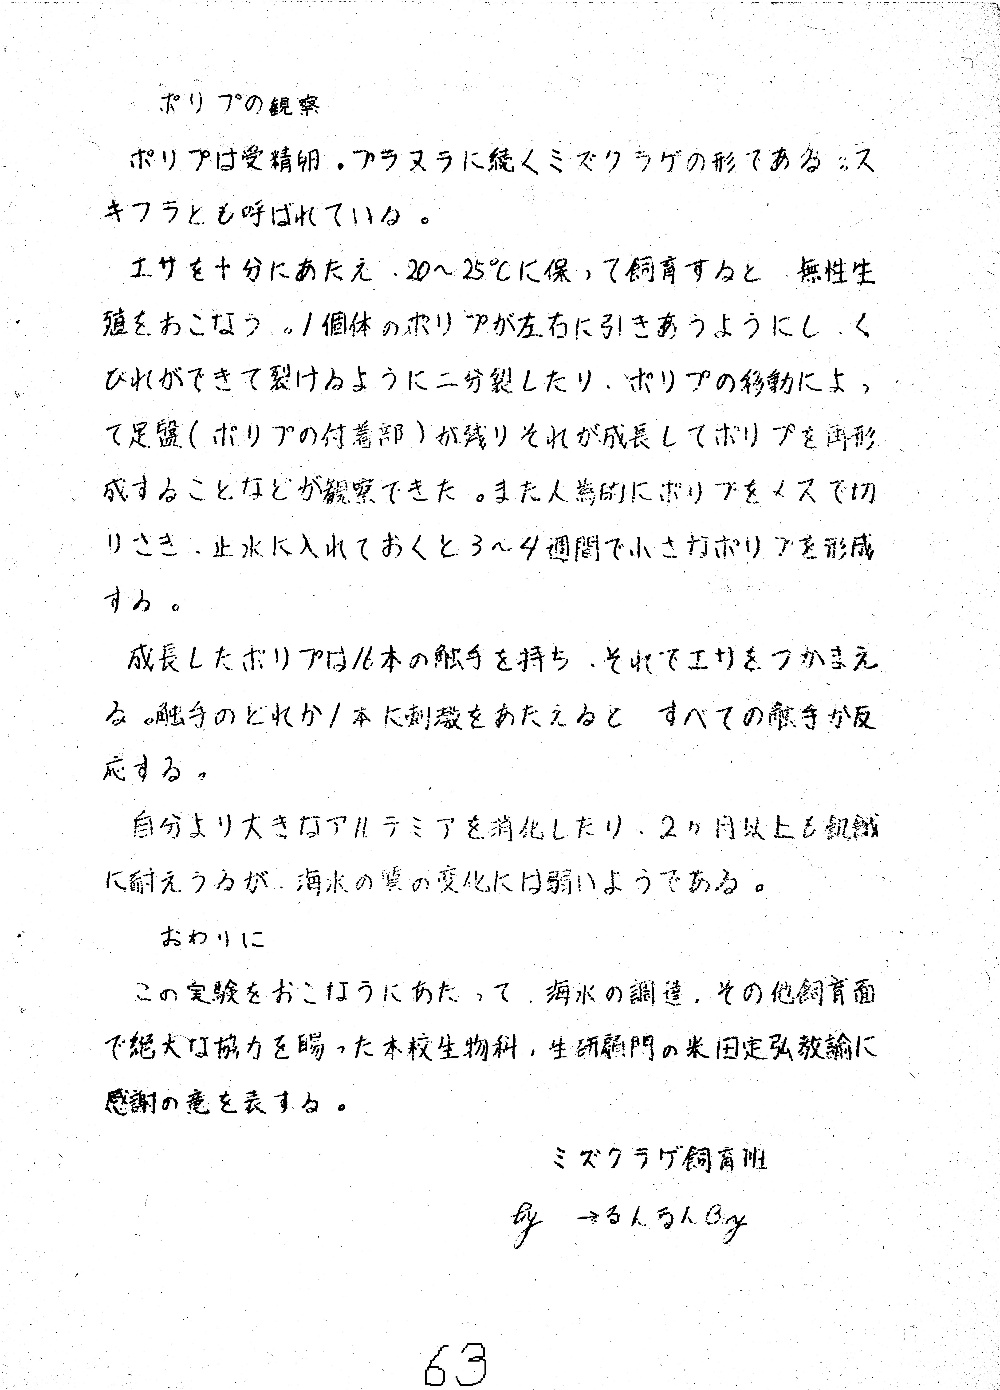 ポリプの観察
ポリプは受精卵。プラヌラに続くミズクラゲの形である。ス
キフラとも呼ばれている。
エサを十分にあたえ、20〜25℃に保って飼育すると 無性生
殖をおこなう。1個体のポリプが左右に引きあうようにし、く
びれができて裂けるように二分裂したり、ポリプの移動によっ
て足盤(ポリプの付着部)が残りそれが成長してポリプを再形
成することなどが観察できた。また人為的にポリプをメスで切
りさき、止水に入れておくと3〜4週間で小さなポリプを形成
する。
成長したポリプは16本の触手を持ち、それでエサをつかまえ
る。触手のどれか1本に刺激をあたえると すべての触手が反
応する。
自分より大きなアルテミアを消化したり、2ヶ月以上も飢餓
に耐えうるが、海水の質の変化には弱いようである。
おわりに
この実験をおこなうにあたって、海水の調達、その他飼育面
で絶大な協力を賜った本校生物科、生研顧問の米田定弘教諭に
感謝の意を表する。
ミズクラゲ飼育班
by →るんるんBoy
63